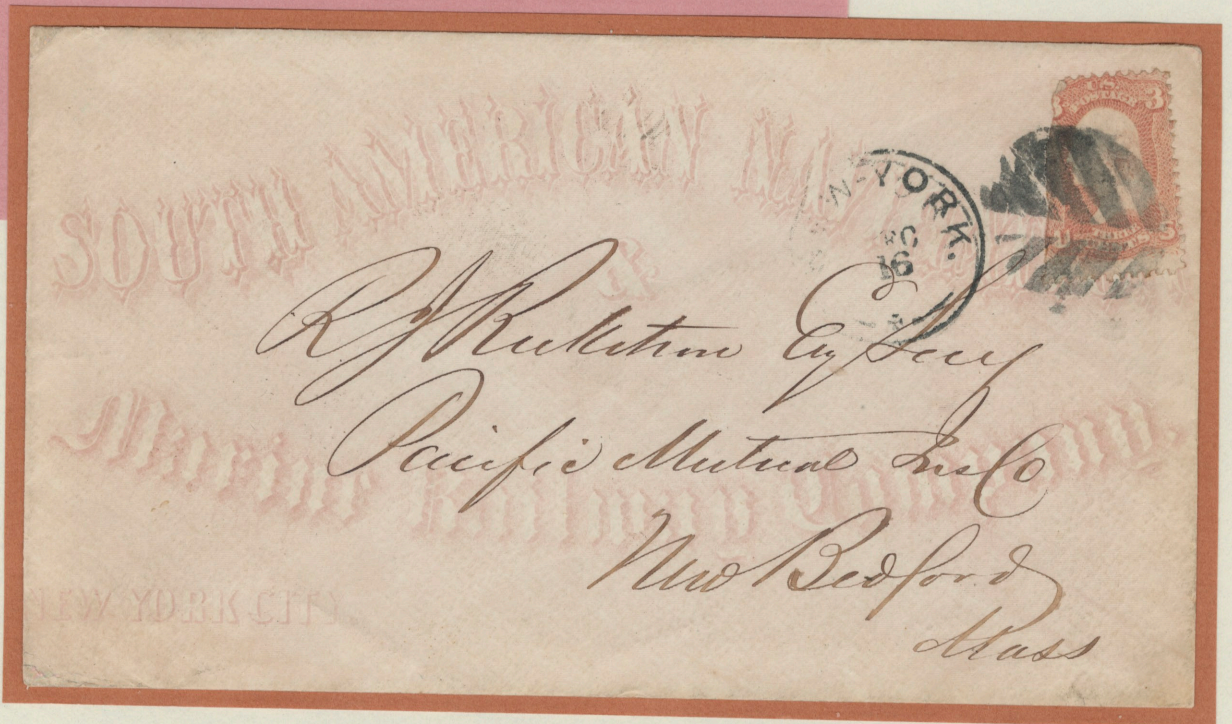 SOUTH AMERICAN NAVIGATION
&
Marine Railway Company.
NEW YORK CITY
NEW-YORK.
DEC
16
U.S.
POSTAGE
3 3
U S
R J Ricketson Esq Secy
Pacific Mutual Ins Co
New Bedford
Mass